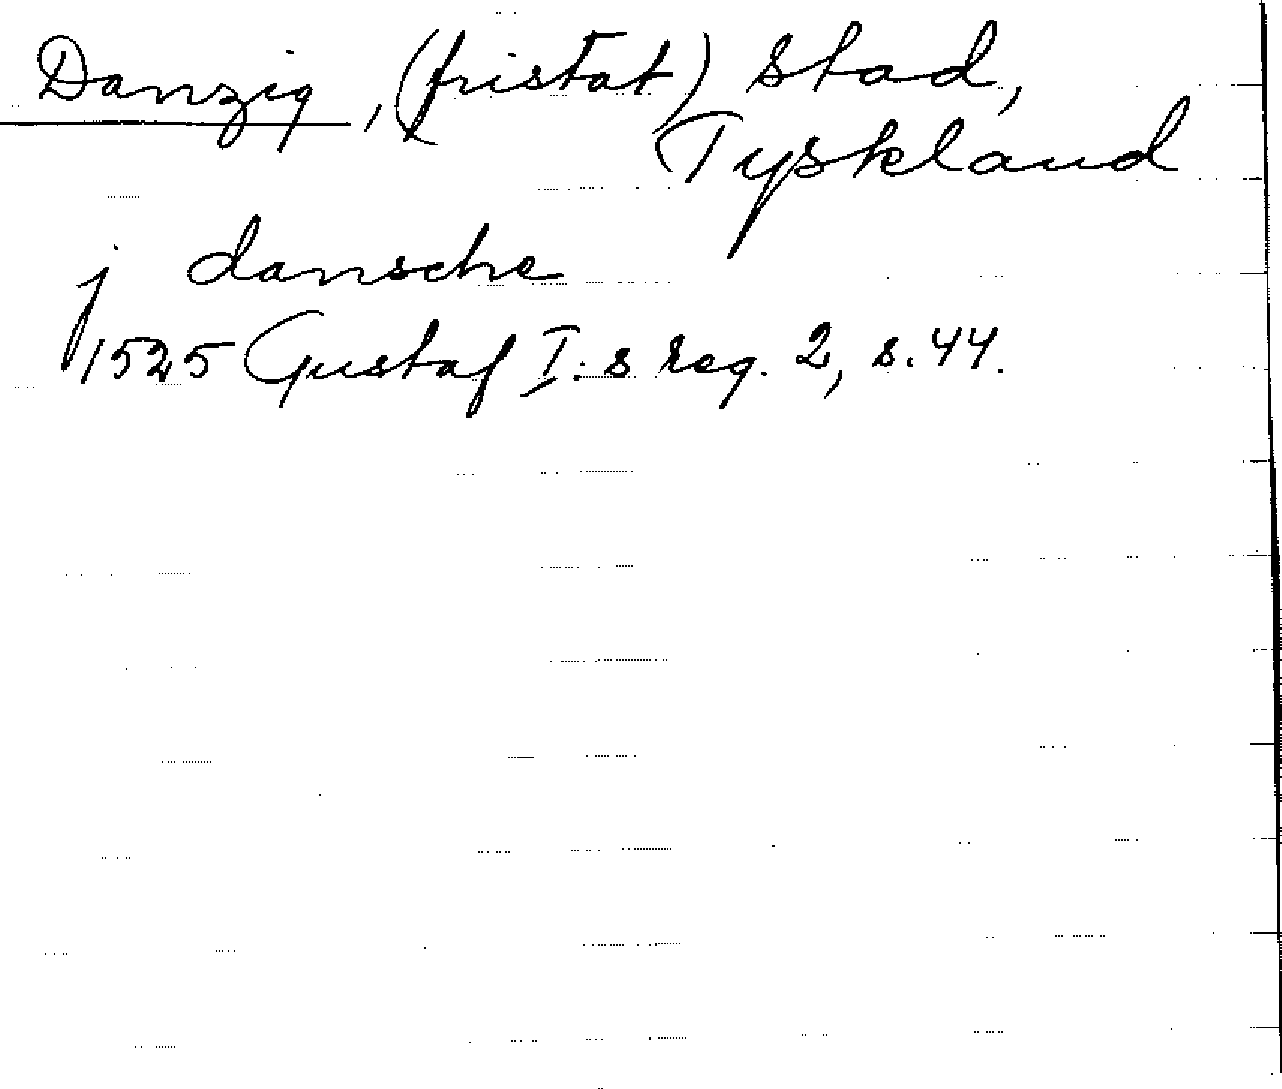 Danzig, (fristat) stad,
Tyskland
j dansche
1525 Gustaf I:s reg. 2, s. 44.